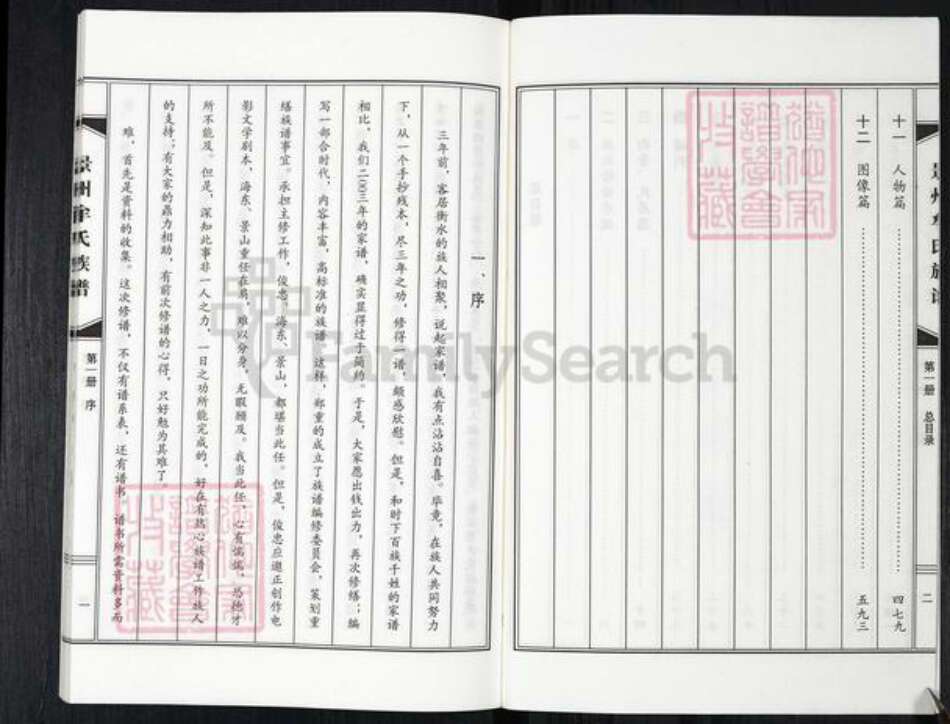 十一 人物篇 四七九
十二 图像篇 五九三
第一册 总目录
二
一、序
三年前，客居衡水的族人相聚，说起家谱，我有点沾沾自喜。毕竟，在族人共同努力
下，从一个手抄残本，尽三年之功，修得一谱，颇感欣慰。但是，和时下百族千姓的家谱
相比，我们二〇〇三年的家谱，确实显得过于简约。于是，大家愿出钱出力，再次修缮；编
写一部合时代，内容丰富，高标准的族谱。这样，郑重的成立了族谱编修委员会，策划重
缮族谱事宜。承担主修工作，俊忠、海东、景山，都堪当此任。但是，俊忠应邀正创作电
影文学剧本，海东、景山重任在肩，难以分身，无暇顾及。我当此任，心有惴惴，恐德才
所不能及。但是，深知此事非一人之力，一日之功所能完成的，好在有热心族谱工作族人
的支持；有大家的鼎力相助，有前次修谱的心得，只好勉为其难了。
难，首先是资料的收集。这次修谱，不仅有谱系表，还有谱书，谱书所需资料多而
氏族谱
第一册 序
一
FamilySearch